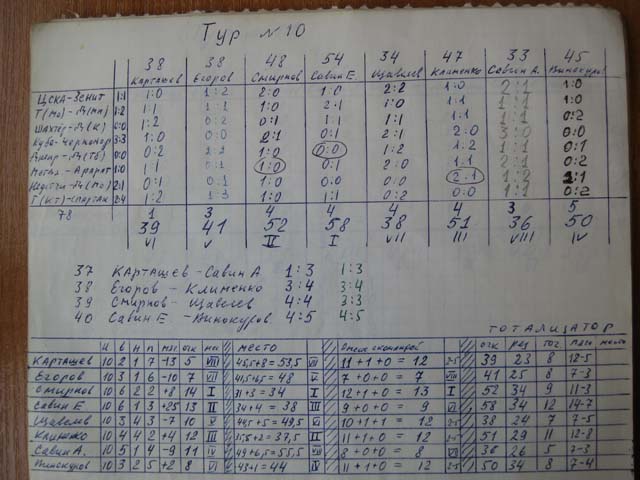 Тур №10
38 38 48 54 34 47 33 45
Карташев Егоров Смирнов Савин Е. Щавелев Клименко Савин А. Винокуров
ЦСКА-Зенит 1:1 1:0 1:2 2:0 1:0 2:2 1:0 2:1 1:0
Т(Мо)-Д(Мн) 1:2 1:1 1:1 1:0 2:1 1:0 1:1 1:1 1:1
Шахтер-Д(К) 0:0 1:2 0:2 0:1 1:1 1:1 1:1 2:1 0:2
3:3 1:0 0:0 2:1 0:1 2:1 2:0 3:0 0:0
0:0 0:2 1:0 0:0 1:2 1:2 0:2
-Арарат 1:0 1:1 0:1 1:0 0:1 2:0 1:1 2:1 0:1
-Д(Мо) 2:1 0:1 0:1 1:0 0:0 0:0 2:1 1:2 2:1
Т(Кт)-Спартак 2:4 1:2 1:3 1:0 1:1 0:2 0:0 1:1 0:2
78 1 3 4 4 4 4 3 5
39 41 52 58 38 51 36 50
VI V II I VII III VIII IV
37 Карташев-Савин А 1:3 1:3
38 Егоров-Клименко 3:4 3:4
39 Смирнов-Щавелев 4:4 3:3
40 Савин Е-Винокуров. 4:5 4:5
ТОТАЛИЗАТОР
И В Н П МЯЧ ОЧК МЕСТО ОЧК РАЗ ТОЧ МЕСТО
Карташев 10 2 1 7 -13 5 VIII 45,5+8=53,5 VII 11+1+0=12 2-5 39 23 8 12-5
Егоров 10 3 1 6 -10 7 VII 41,5+6,5=48 V 7+0+0=7 VIII 41 25 8 7-3
Смирнов 10 6 2 2 +8 14 I 31+3=34 I 12+1+0=13 I 52 34 9 11-3
Савин Е 10 6 1 3 +25 13 II 34+4=38 III 9+0+0=9 VI 58 34 12 14-7
Щавелев 10 3 4 3 -7 10 V 44,5+5=49,5 VI 10+1+1=12 2-5 38 24 7 7-5
Клименко 10 4 4 2 +4 12 III 35,5+2=37,5 II 11+1+0=12 2-5 51 29 11 12-8
Савин А. 10 5 1 4 -9 11 IV 49+6,5=55,5 VIII 8+0+0=8 VII 36 26 5 7-3
Винокуров 10 3 2 5 +2 8 VI 43+1=44 IV 11+1+0=12 2-5 50 34 8 7-4